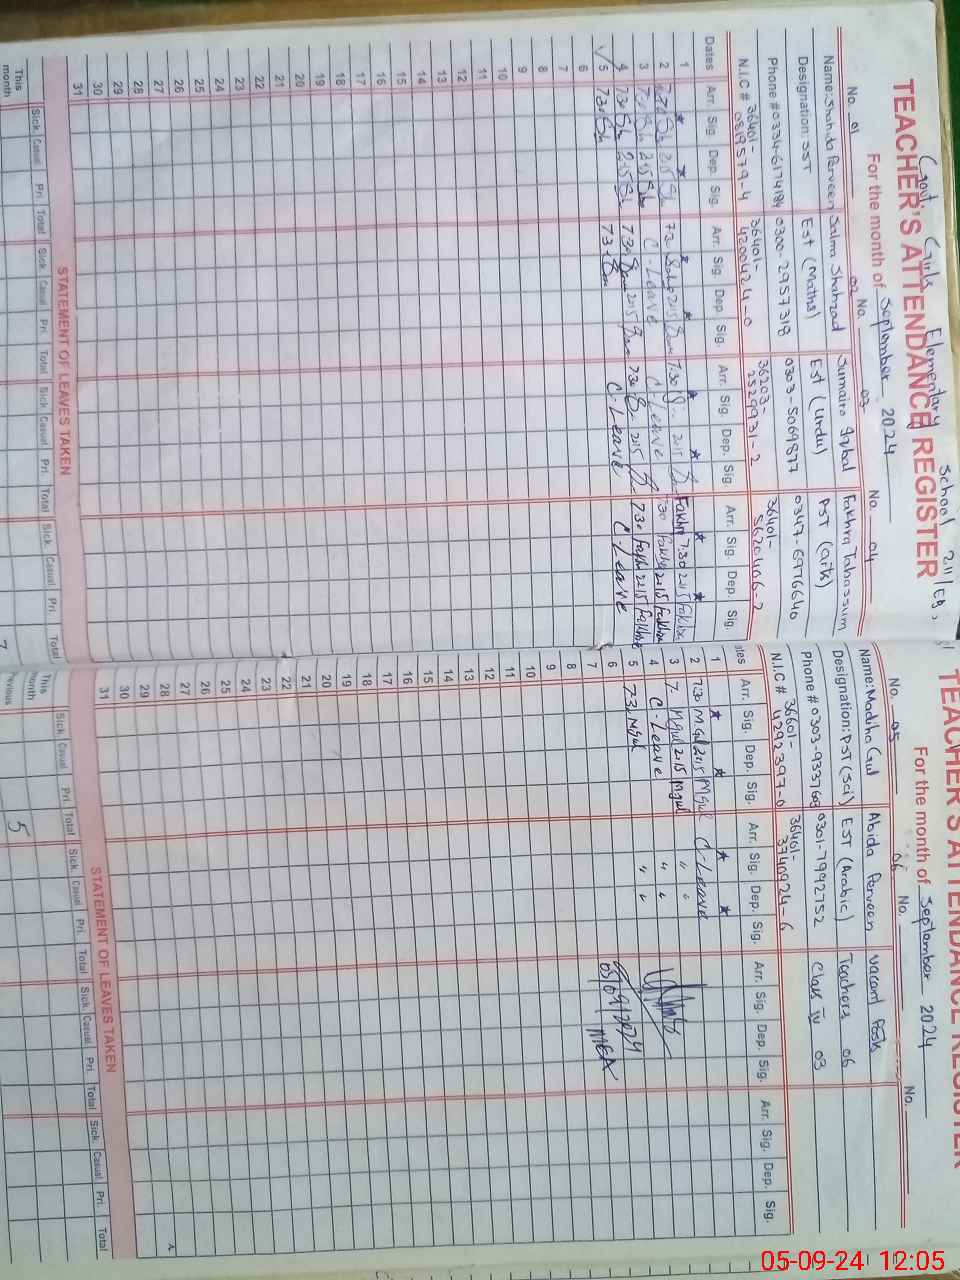 Govt. Girls Elementary School 211/EB.
TEACHER'S ATTENDANCE REGISTER
For the month of September 2024
No. 01 02 No. 03 No. 04
Name: Shahida Parveen Salma Shahzad Sumaira Iqbal Fakhra Tabassum
Designation: SST Est (Maths) Est (Urdu) PST (Arts)
Phone # 0334-6174184 0300-2957319 0303-5069877 0347-6976640
N.I.C # 36401-0819579-4 36401-4200424-0 36203-2529931-2 36401-5620406-2
Dates Arr. Sig. Dep. Sig. Arr. Sig. Dep. Sig. Arr. Sig. Dep. Sig. Arr. Sig. Dep. Sig.
1
2 7:30 215 7:30 215 Fakhr 7:30 215 Fakhra
3 215 C-Leave C-Leave 730 Fakhra 2215 Fakhra
4 730 Sh 215 Sh 730 215 730 215 730 Fakhr 2215 Fakhra
5 730 Sh 730 C-Leave C-Leave
6
7
8
9
10
11
12
13
14
15
16
17
18
19
20
21
22
23
24
25
26
27
28
29
30
31
STATEMENT OF LEAVES TAKEN
Sick. Casual Pri Total Sick Casual Pri. Total Sick Casual Pri. Total Sick. Casual Pri. Total
This month
TEACHER'S ATTENDANCE REGISTER
For the month of September 2024
No. 05 06 No. No.
Name: Madiha Gul Abida Parveen Vacant Posts
Designation: PST (Sci) EST (Arabic) Teachers 06
Phone # 0303-9337603 0301-7992752 Class IV 03
N.I.C # 36601-4292397-0 36401-3740924-6
ates Arr. Sig. Dep. Sig. Arr. Sig. Dep. Sig. Arr. Sig. Dep. Sig. Arr. Sig. Dep. Sig.
1
2 7:30 M.Gul 215 Mgul C-Leave
3 7- Mgul 2215 Mgul " "
4 C-Leave " "
5 73 Mgul " "
6
7
8
9
10
11
12
13
14
15
16
17
18
19
20
21
22
23
24
25
26
27
28
29
30
31
05/09/2024
MEA
STATEMENT OF LEAVES TAKEN
Sick. Casual Pri. Total Sick Casual Pri. Total Sick Casual Pri. Total Sick. Casual Pri Total
This month 5
Previous
05-09-24 12:05